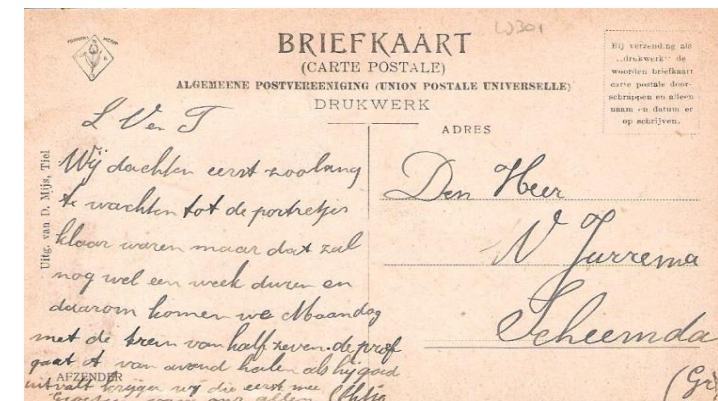 BRIEFKAART
(CARTE POSTALE)
ALGEMEENE POSTVEREENIGING (UNION POSTALE UNIVERSELLE)
DRUKWERK
Bij verzending als
„drukwerk" de
woorden briefkaart
carte postale door-
schrappen en alleen
naam en datum er
op schrijven.
Uitg. van D. Mijs, Tiel
L V en T
Wij dachten eerst zoolang
te wachten tot de portretjes
klaar waren maar dat zal
nog wel een week duren en
daarom komen we Maandag
met de trein van half zeven. de proef
gaat A van avond halen als hij goed
uitvalt krijgen wij die eerst mee
Groeten van ons allen
AFZENDER
ADRES
Den Heer
N Jurrema
Scheemda
(Gr